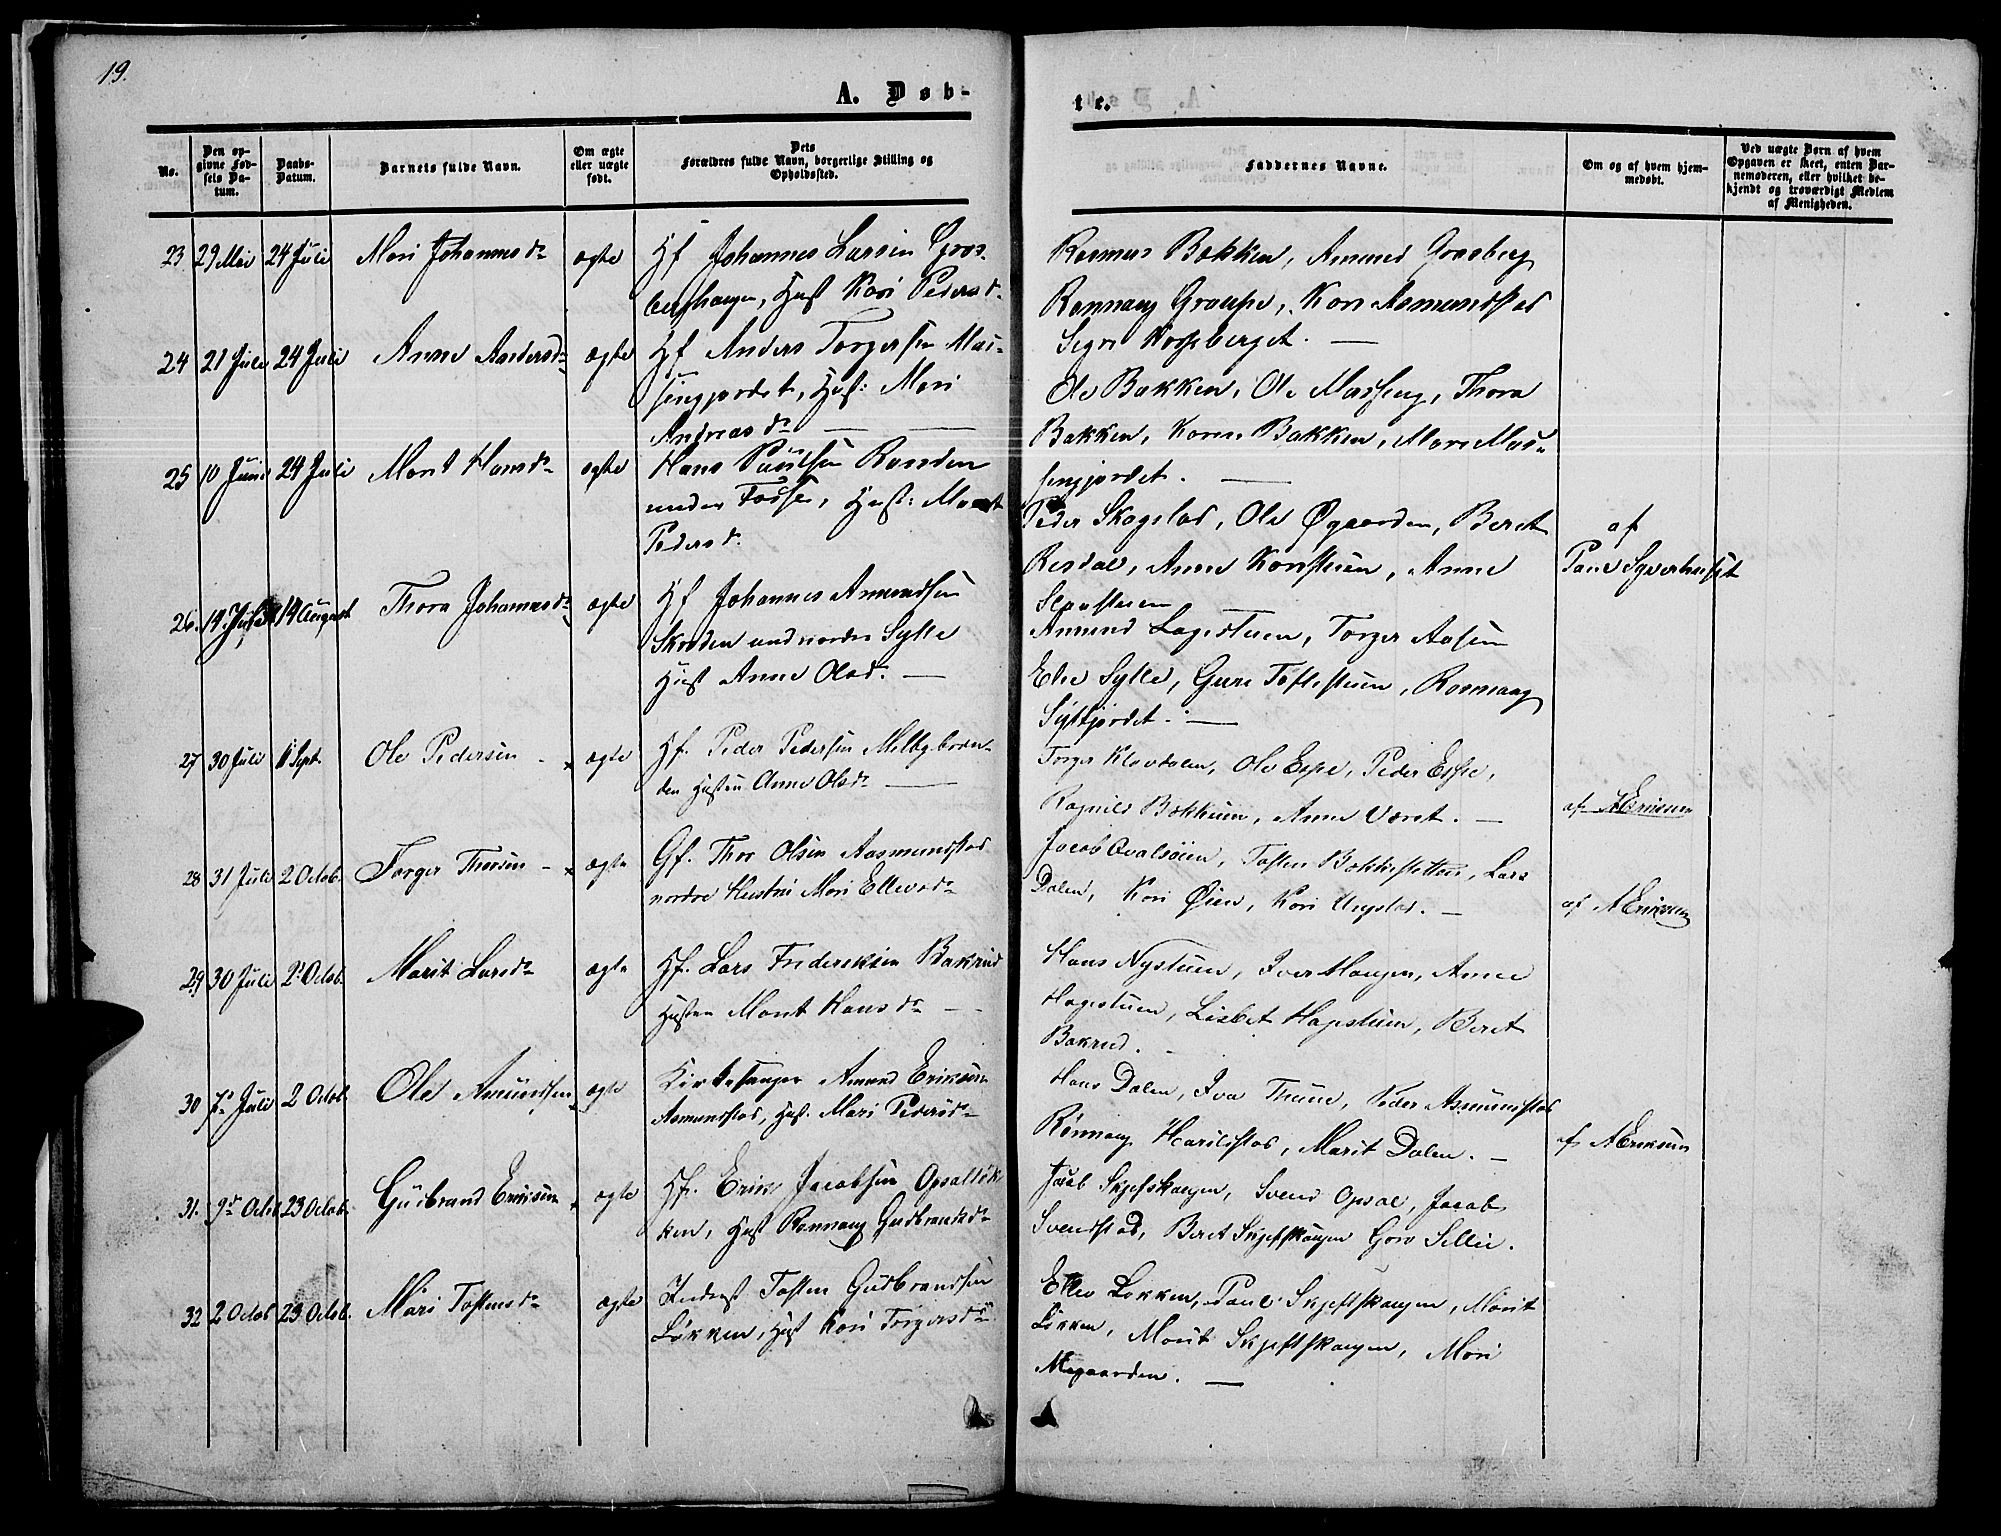 19.
A. Døb-
te.
No.
Den op-
givne Fød-
sels Da-
tum.
Daabs-
Datum.
Barnets fulde Navn.
Om ægte
eller uægte
født.
Dets
Forældres fulde Navn, borgerlige Stilling og
Opholdssted.
Faddernes Navne.
Om og af hvem hjem-
medøbt.
Ved uægte Børn af hvem
Opgaven er skeet, enten Bar-
nemoderen, eller hvilket be-
kjendt og troværdigt Medlem
af Menigheden.
23 29 Mai 24 Juli Mari Johannesdr ægte Hf Johannes Larsen Graa-
berghaugen, Hust Kari Pedersd.
Rasmus Bakken, Amund Graaberg
Rannaug Graupe, Kari Asmundstad
Sigri Kopsberget. —
24 21 Juli 24 Juli Anne Andersdr ægte Hf Anders Torgersen Mas-
singjordet, Hust: Mari
Andreasdr — —
Ole Bakken, Ole Massing, Thora
Bakken, Karen Bakken, Mari Mas-
singjordet. —
25 10 Juni 24 Juli Marit Hansdr ægte Hans Paulsen Randen
under Fosse, Hust: Marit
Pedersd.
Peder Skogstad, Ole Øgaarden, Beret
Risdal, Anne Konstuen, Anne
Slaastuen
af
Paul Syverhuset
26. 14 August Thora Johannesdr ægte Hf Johannes Amundsen
Skrøden und nordre Sylte
Hust Anne Olsd. —
Amund Lagestuen, Torger Aasen
Elie Sylte, Guri Toftestuen, Rannaug
Syltjordet. —
27 30 Juli 11 Sept. Ole Pedersen - x ægte Hf. Peder Pedersen Melbybraaten-
den Hustru Anne Olsdr —
Torger Klevdalen, Ole Espe, Peder Espe,
Ragnild Bakkuen, Anne Varet. —
af AEriksen
28 31 Juli 2 Octob. Torger Thorsen - x ægte Gf. Thor Olsen Aasmundstad
nordre Hustru Mari Ellevsdr
Jacob Qvalsøien, Tosten Bakkesletten, Lars
Dalen, Kari Øien, Kari Ungstad. —
af AEriksen
29 30 Juli 2d Octob. Marit Larsdr ægte Hf. Lars Frideriksen Bakrud
Hustru Marit Hansdr —
Hans Nystuen, Iver Haugen, Anne
Hagestuen, Lisbet Hagestuen, Beret
Bakrud. —
30 7d Juli 2 Octob. Ole Amundsen ægte Kirkesanger Amund Eriksen
Asmundstad, Hust. Mari Pedersdr
Hans Dalen, Iva Thune, Peder Asmundstad
Rønnaug Harildstad, Marit Dalen. —
af AEriksen
31. 9d Octob 23 Octob. Gudbrand Eriksen ægte Hf. Erik Jacobsen Opsalløk-
ken, Hust Rannaug Gudbrandsdr
Jacob Skjefskaugen, Svend Opsal, Jacob
Svendstad, Beret Skjefskaugen Goro Sellie.
32 2 Octob 23 Octob. Mari Tostensdr ægte Inderst Tosten Gudbrandsen
Løkken, Hust Kari Torgersdr
Ellev Løkken, Paul Skjeftskaugen, Marit
Løkken, Marit Skjeftskaugen, Mari
Megaarden. —